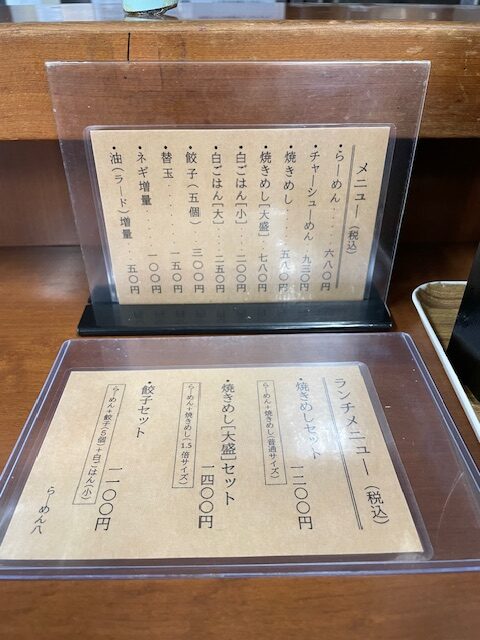 メニュー(税込)
・らーめん‥‥六八〇円
・チャーシューめん‥九三〇円
・焼きめし‥‥五八〇円
・焼きめし[大盛]‥七八〇円
・白ごはん[小]‥‥二〇〇円
・白ごはん[大]‥‥二五〇円
・餃子(五個)‥‥三〇〇円
・替玉‥‥‥‥一五〇円
・ネギ増量‥‥‥一〇〇円
・油(ラード)増量‥‥五〇円
ランチメニュー(税込)
・焼きめしセット
一二〇〇円
らーめん+焼きめし(普通サイズ)
・焼きめし[大盛]セット
一四〇〇円
らーめん+焼きめし(1.5倍サイズ)
・餃子セット
一一〇〇円
らーめん+餃子(5個)+白ごはん(小)
らーめん八